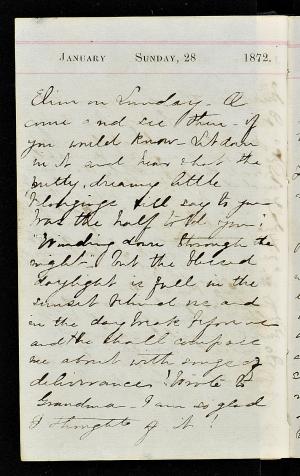 January Sunday, 28 1872.
Elim on Sunday - O
come and see them - if
you would know. Sit down
in it and hear what the
pretty, dreamy little
belongings will say to you
Was the half told you?
"Winding down through the
night" - but the blessed
daylight is full in the
sunset behind us and
in the daybreak before us
and He shall compass
me about with songs of
deliverance! Wrote to
Grandma - I am so glad
I thought of it!